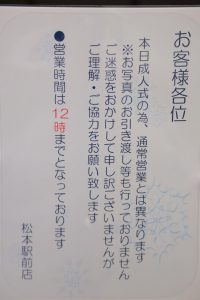 お客様各位
本日成人式の為、通常営業とは異なります
※お写真のお引き渡し等も行っておりません
ご迷惑をおかけして申し訳ございませんが
ご理解・ご協力をお願い致します
●営業時間は12時までとなっております
松本駅前店